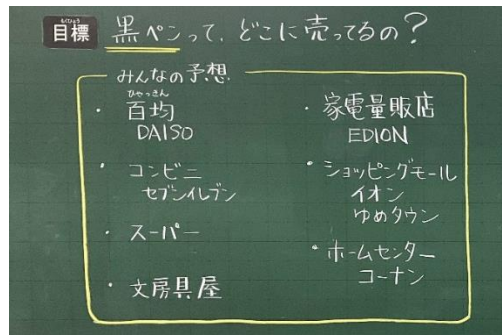 目標 黒ペンって、どこに売ってるの?
みんなの予想
・百均
DAISO
・コンビニ
セブンイレブン
・スーパー
・文房具屋
・家電量販店
EDION
・ショッピングモール
イオン
ゆめタウン
・ホームセンター
コーナン